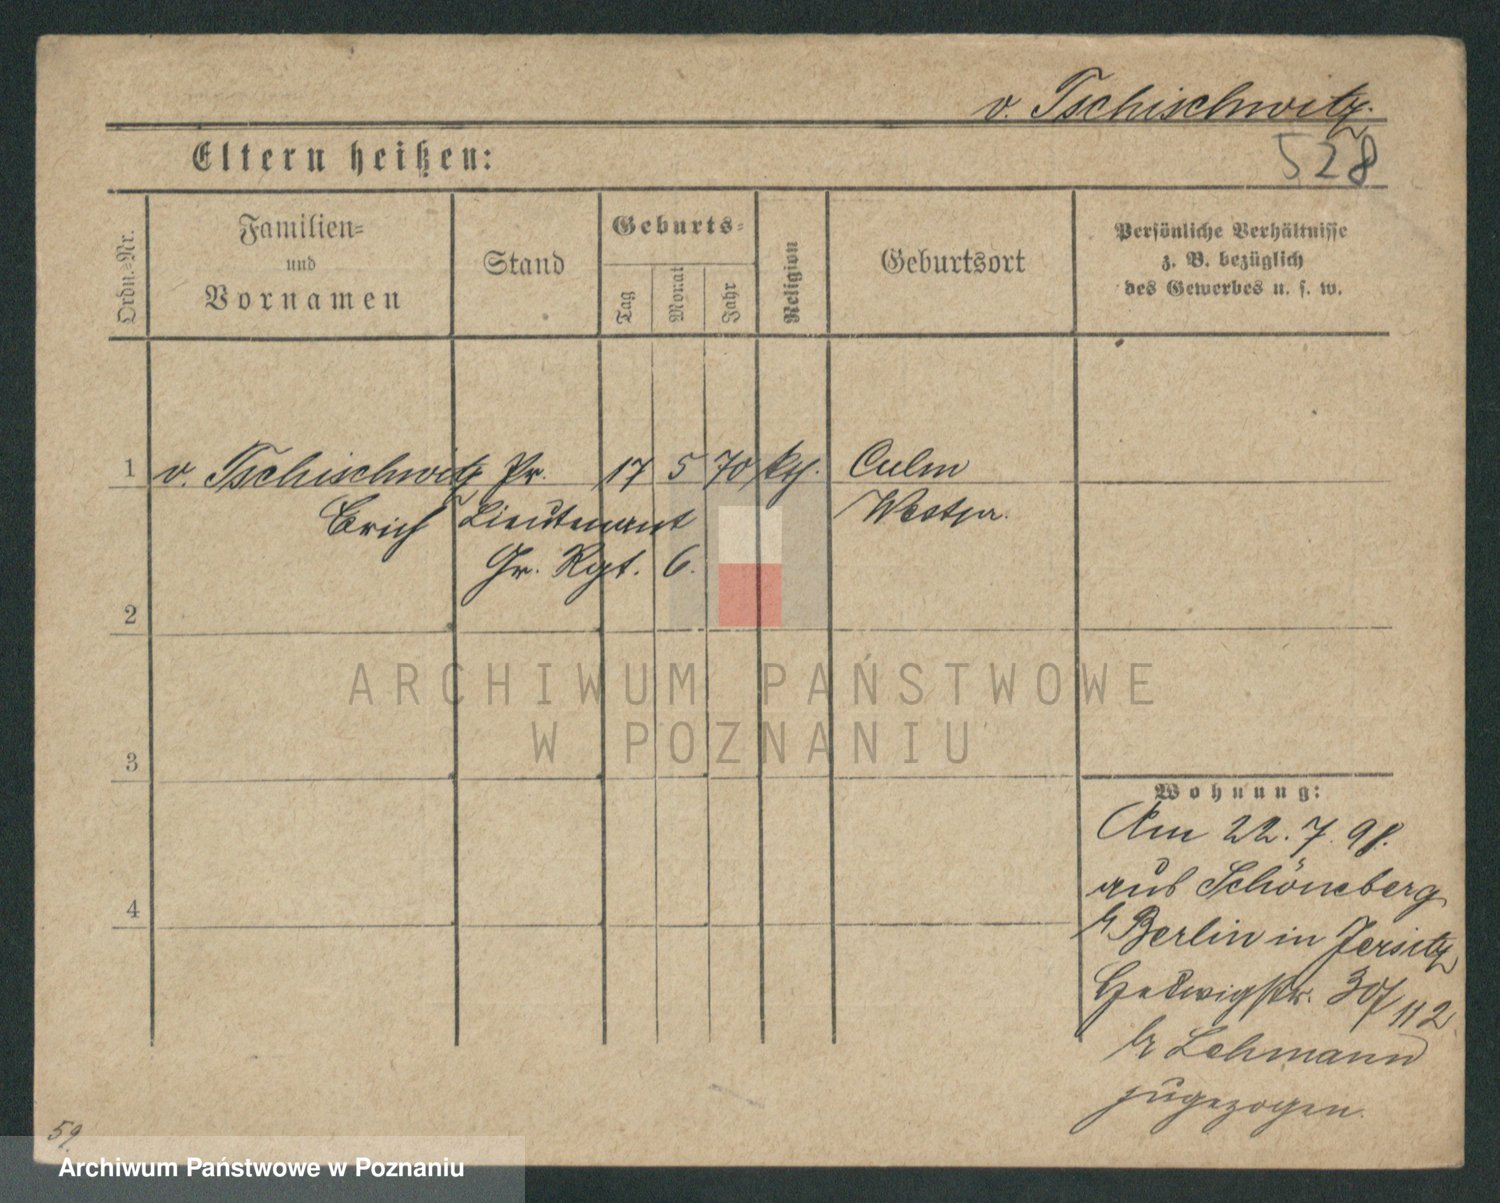 v. Tschischwitz.
528
Eltern heißen:
Ordn.=Nr.
Familien=
und
Vornamen
Stand
Geburts=
Tag
Monat
Jahr
Religion
Geburtsort
Persönliche Verhältnisse
z. B. bezüglich
des Gewerbes u. s. w.
1 v. Tschischwitz Pr. 17 5 70 Culm
Erich Lieutenant Westpr.
Gr. Rgt. 6.
2
3
4
Wohnung:
Am 22. 7. 98.
aus Schöneberg
b Berlin in Jersitz
Hedwigstr.
b Lehmann
zugezogen.
59
ARCHIWUM PAŃSTWOWE
W POZNANIU
Archiwum Państwowe w Poznaniu